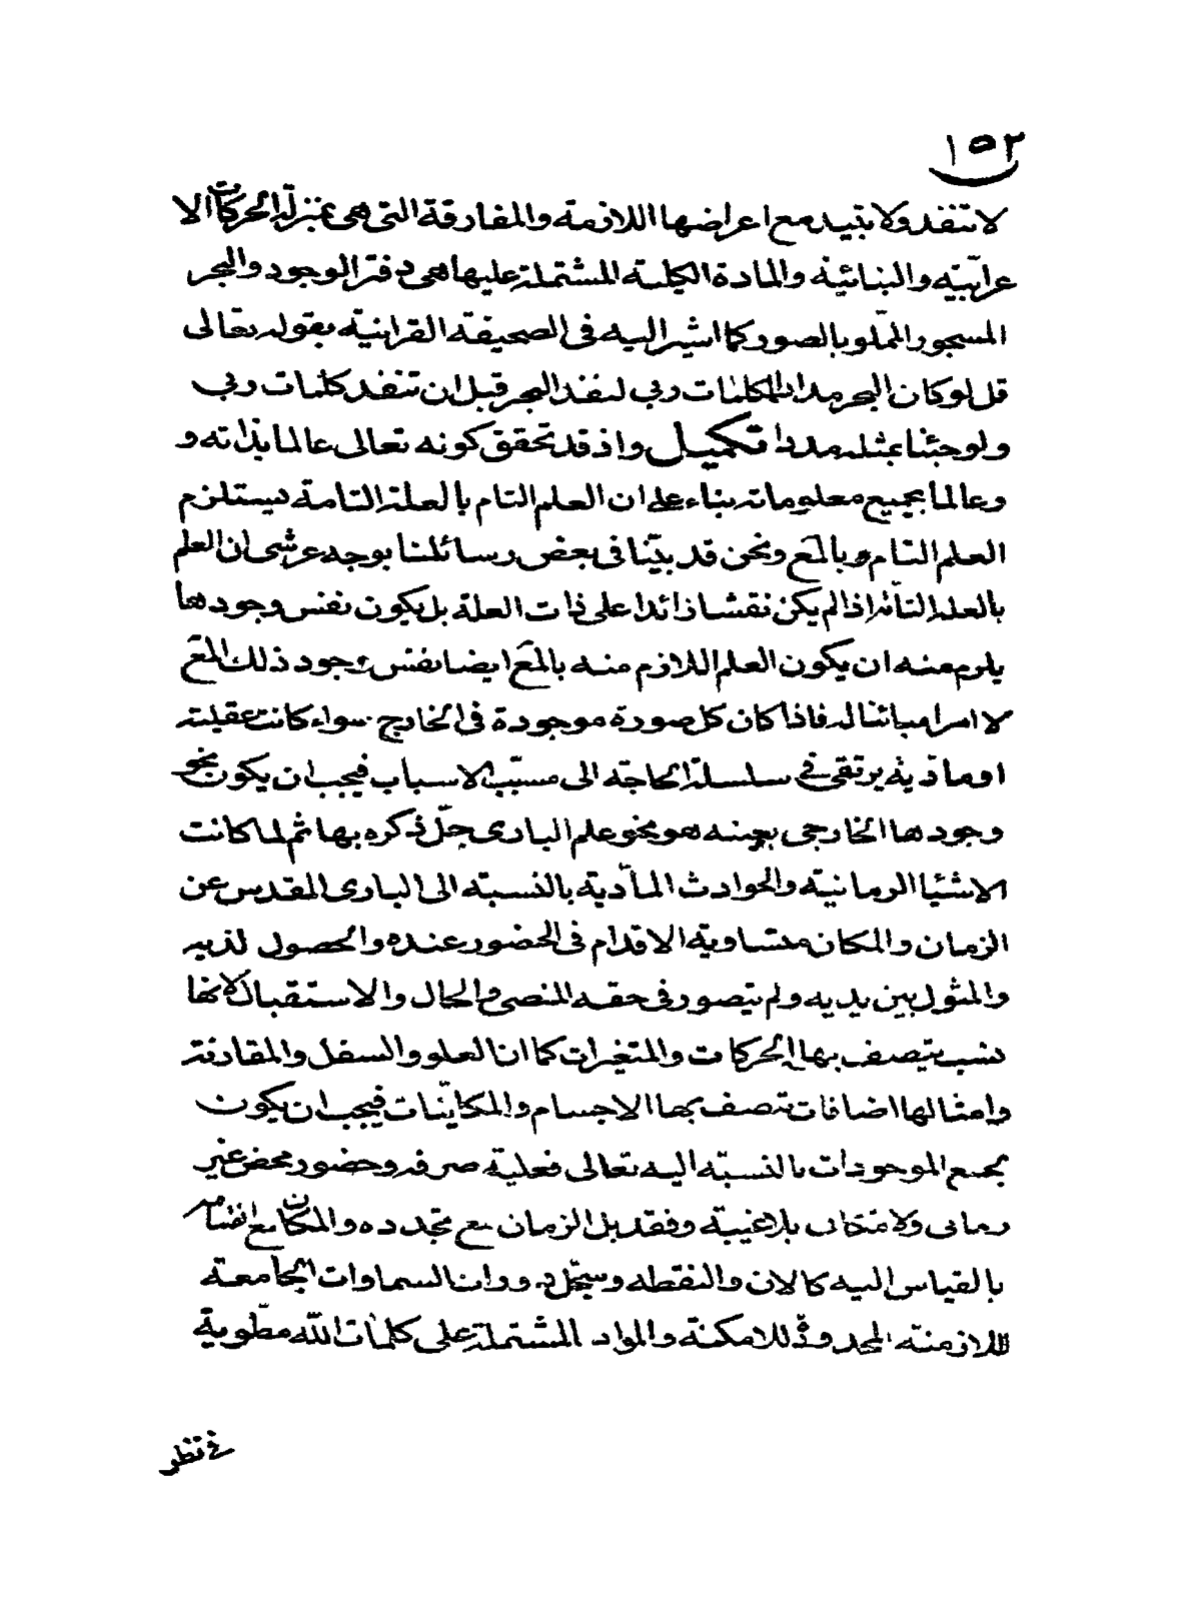 ١٥٢
لا تنفد ولا تبيد مع اعراضها اللازمة والمفارقة التى هى بمنزلة الحركات الا
عرابيّة والبنائية والمادة الكلية المشتملة عليها هى دفتر الوجود والبحر
المسجور المملو بالصور كما اشير اليه فى الصحيفة القرانية بقوله تعالى
قل لو كان البحر مدادا لكلمات ربى لنفد البحر قبل ان تنفد كلمات ربى
ولو جئنا بمثله مددا تكميل واذ قد تحقق كونه تعالى عالما بذاته و
وعالما بجميع معلوماته بناء على ان العلم التام بالعلة التامة يستلزم
العلم التام بالمع ونحن قد بيّنا فى بعض رسائلنا بوجه عرشى ان العلم
بالعلة التامّة اذا لم يكن نقشا زائدا على ذات العلة بل يكون نفس وجودها
يلزم منه ان يكون العلم اللازم منه بالمع ايضا نفس وجود ذلك المع
لا امرا مباينا له فاذا كان كل صورة موجودة فى الخارج سواء كانت عقلية
او مادّية يرتقى فى سلسلة الحاجة الى مسبّب الاسباب فيجب ان يكون نحو
وجودها الخارجى بعينه هو نحو علم البارى جلّ ذكره بها ثم لما كانت
الاشيا الزمانية والحوادث المادّية بالنسبة الى البارى المقدس عن
الزمان والمكان متساوية الاقدام فى الحضور عنده والحصول لديه
والمثول بين يديه ولم يتصور فى حقه المضى والحال والاستقبال لانها
نسب يتصف بها الحركات والمتغيرات كما ان العلو والسفل والمقارنة
وامثالها اضافات تتصف بها الاجسام والمكانيّات فيجب ان يكون
جميع الموجودات بالنسبة اليه تعالى فعلية صرفه وحضور محض غير
زمانى ولا مكانى بلا غيبة وفقد بل الزمان مع تجدده والمكان مع انقسامه
بالقياس اليه كالان والنقطه وسجلّ وان السماوات الجامعة
للازمنة المحدودة للامكنة والمواد المشتملة على كلمات اللّه مطّوية
فى نظر